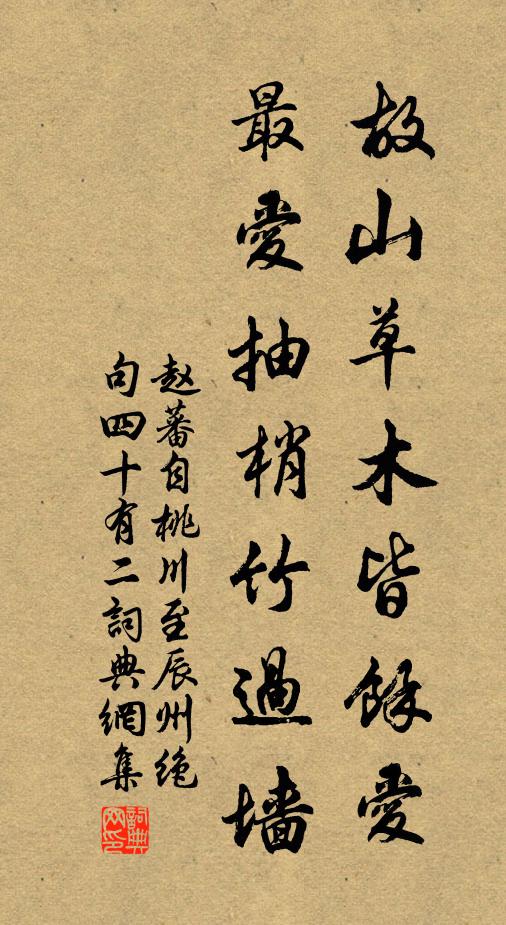 故山草木皆餘愛
最愛抽梢竹過墙
赵蕃自桃川至辰州绝
句四十有二詞典網集
詞典
网印